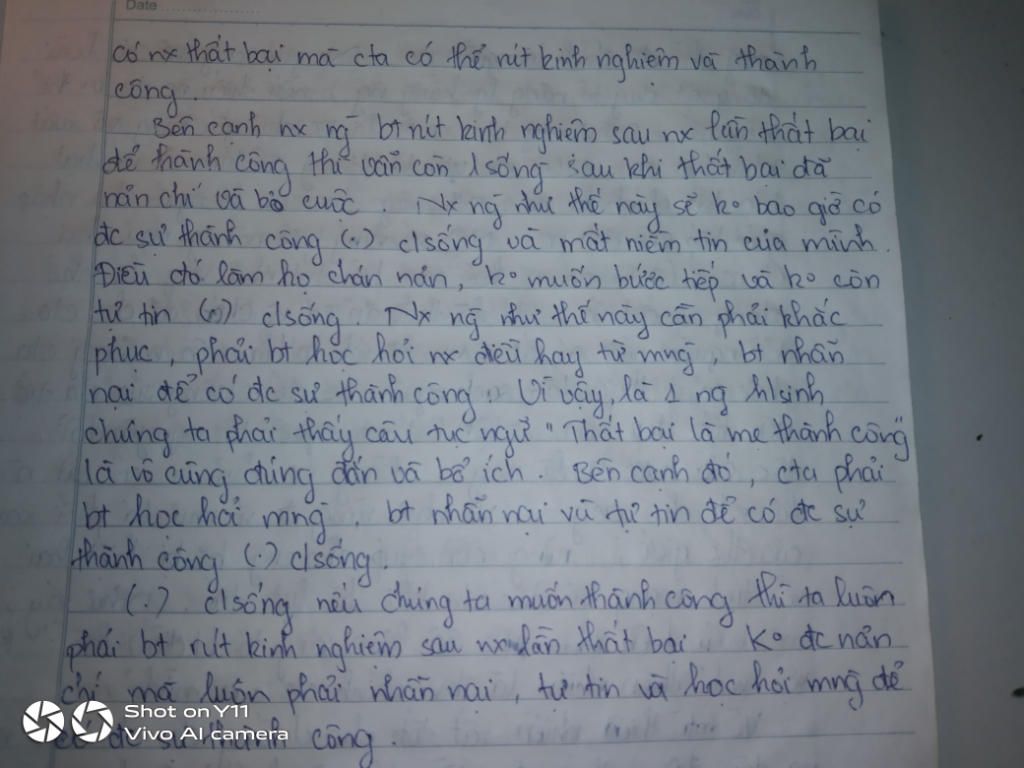 Date
có nx thất bại mà cta có thể rút kinh nghiệm và thành
công.
Bên cạnh nx ng bt rút kinh nghiệm sau nx lần thất bại
để thành công thì vẫn còn 1 số ng sau khi thất bại đã
nản chí và bỏ cuộc. Nx ng như thế này sẽ ko bao giờ có
đc sự thành công (.) c/sống và mất niềm tin của mình.
Điều đó làm họ chán nản, ko muốn bước tiếp và ko còn
tự tin (.) c/sống. Nx ng như thế này cần phải khắc
phục, phải bt học hỏi nx điều hay từ mng, bt nhẫn
nại để có đc sự thành công. Vì vậy, là 1 ng h/sinh
chúng ta phải thấy câu tục ngữ "Thất bại là mẹ thành công"
là vô cùng đúng đắn và bổ ích. Bên cạnh đó, cta phải
bt học hỏi mng, bt nhẫn nại và tự tin để có đc sự
thành công (.) c/sống.
(.) c/sống nếu chúng ta muốn thành công thì ta luôn
phải bt rút kinh nghiệm sau nx lần thất bại. Ko đc nản
chí mà luôn phải nhẫn nại, tự tin và học hỏi mng để
có đc sự thành công.
Shot on Y11
Vivo AI camera